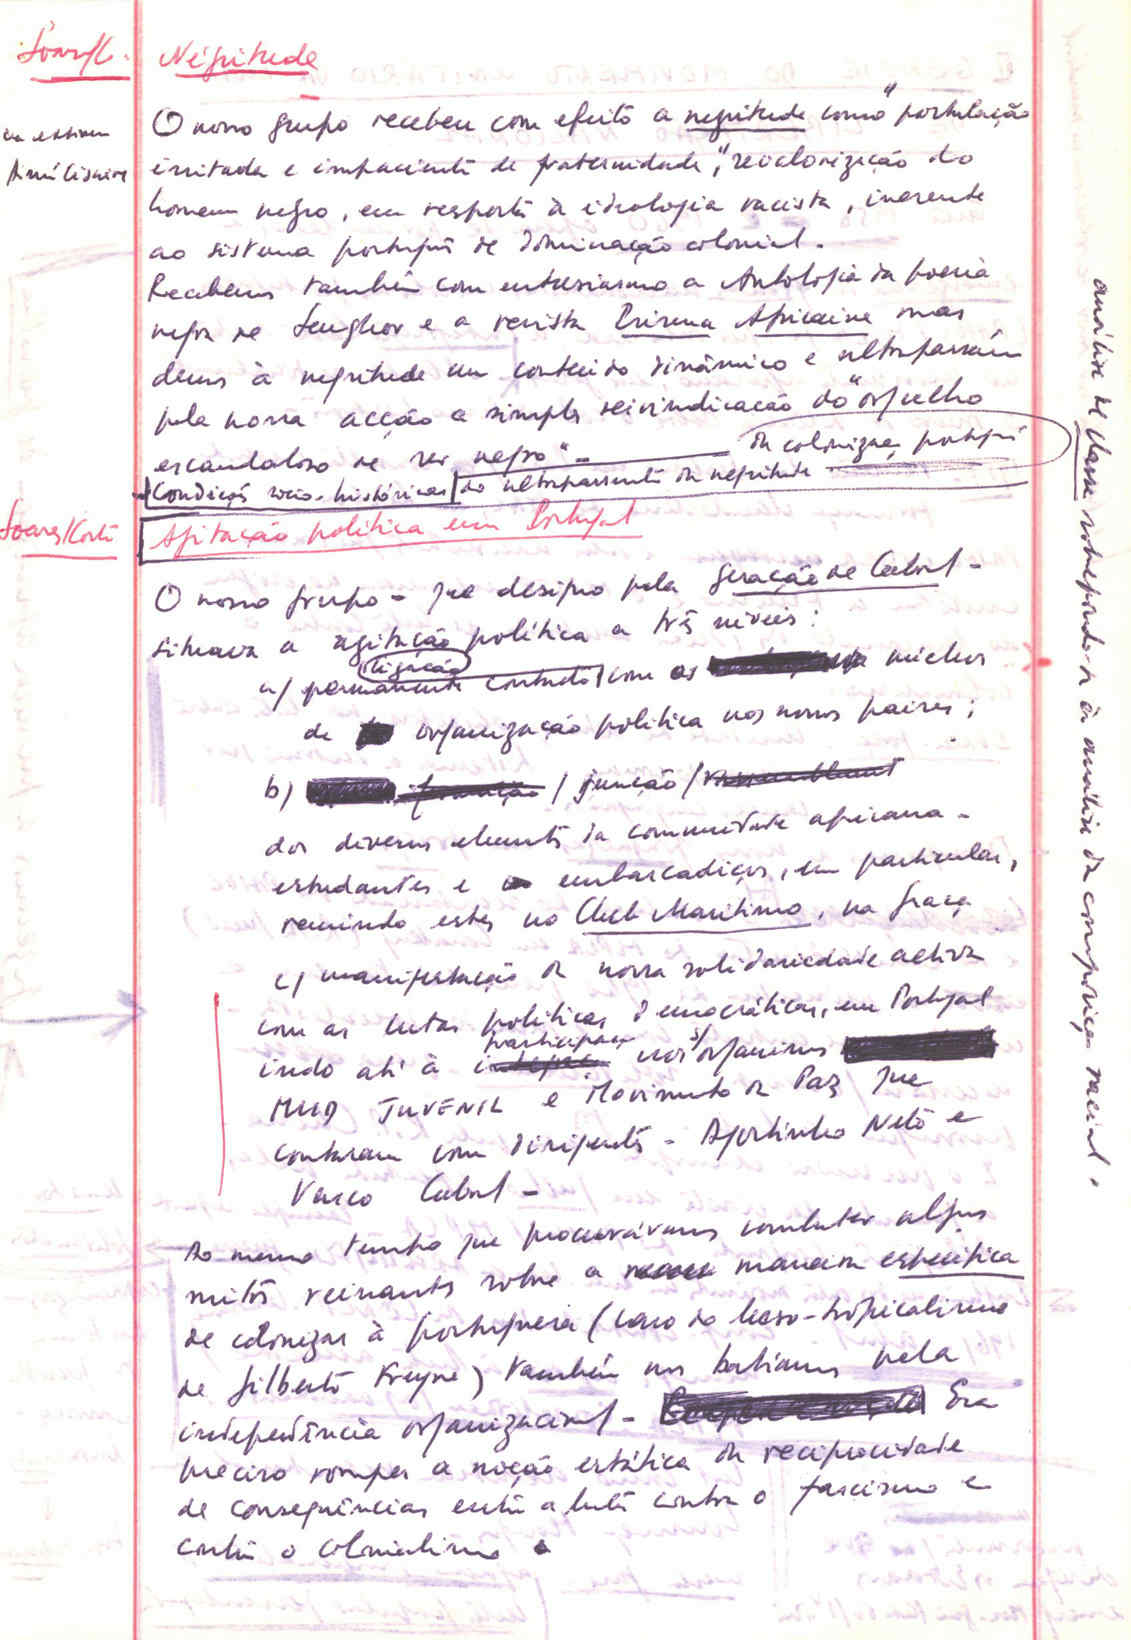 Négritude
O nosso grupo recebeu com efeito a negritude como "postulação
irritada e impaciente de fraternidade", revalorização do
homem negro, em resposta à ideologia racista, inerente
ao sistema português de dominação colonial.
Recebemos também com entusiasmo a Antologia da poesia
negra de Senghor e a revista Présence Africaine mas
demos à negritude um conteúdo dinâmico e ultrapassámos
pela nossa acção a simples reivindicação do "orgulho
escandaloso de ser negro".
da colonização portuguesa
Condições sócio-históricas do ultrapassamento da negritude
Soares/Corte
Agitação política em Portugal
O nosso grupo - que designo pela geração de Cabral -
situava a agitação política a três níveis:
ligação
a) permanente contacto com os núcleos
de organização política nos nossos países;
b) formação / junção / rassemblement
dos diversos elementos da comunidade africana -
estudantes e embarcadiços, em particular,
reunindo estes no Club Marítimo, na Graça
c) manifestação da nossa solidariedade activa
com as lutas políticas democráticas, em Portugal
participação
indo até à nos organismos
MUD JUVENIL e Movimento da Paz que
contaram com dirigentes - Agostinho Neto e
Vasco Cabral -
Ao mesmo tempo que procurávamos combater alguns
mitos reinantes sobre a maneira específica
de colonizar à portuguesa (caso do luso-tropicalismo
de Gilberto Freyre) também nos batíamos pela
independência organizacional - Era
preciso romper a noção estática da reciprocidade
de consequências entre a luta contra o fascismo e
contra o colonialismo
análise de classe sobrepondo-se à análise da composição racial.